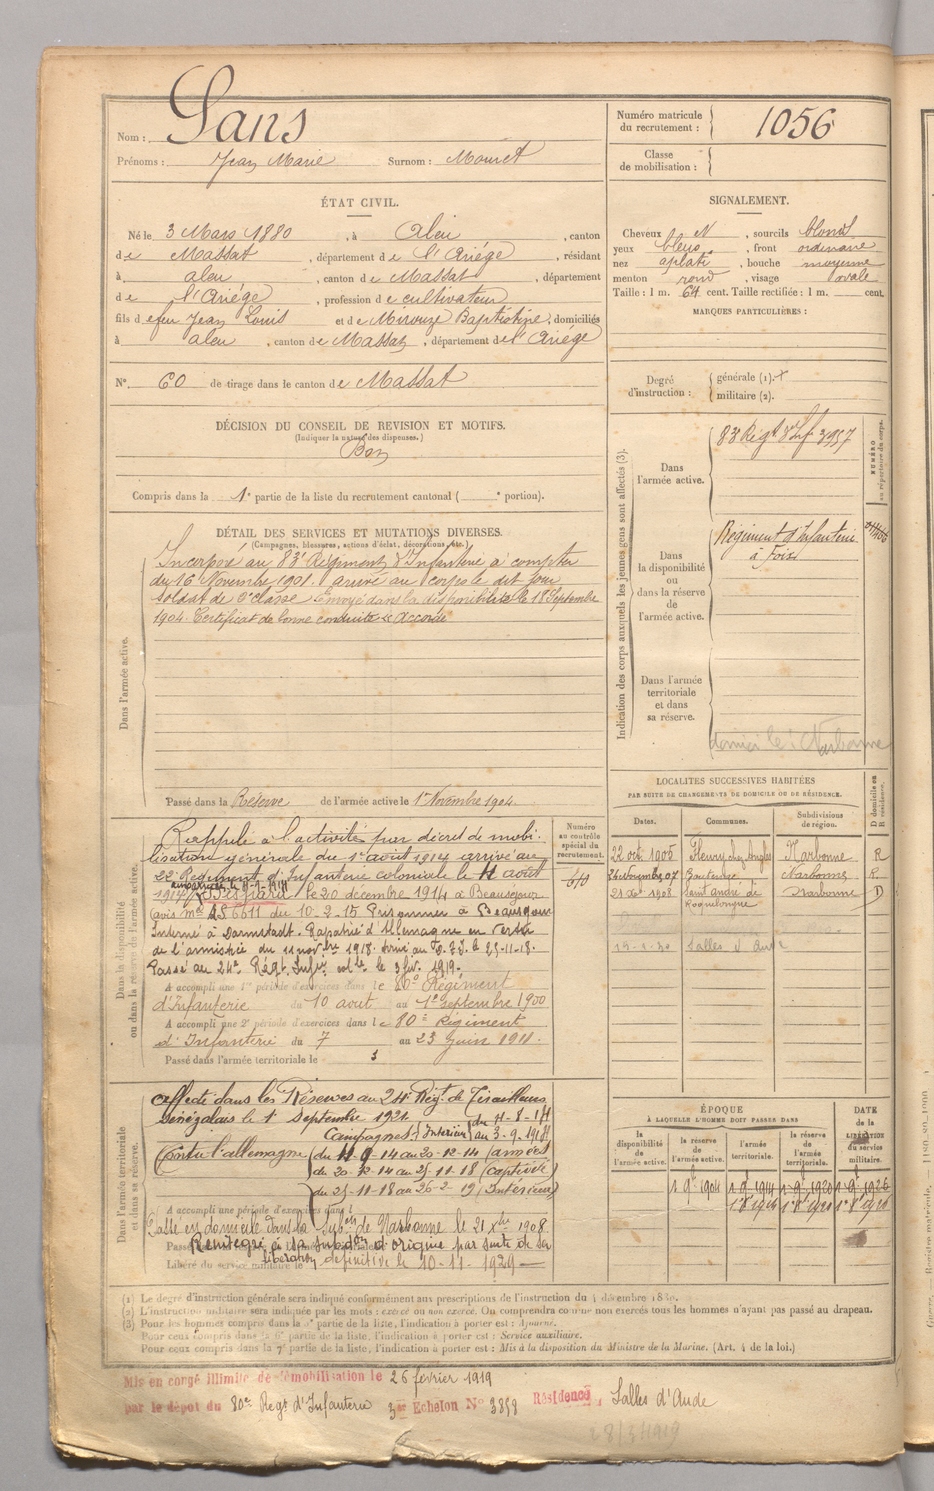 Nom : Sans
Prénoms : Jean Marie Surnom : Mouret
Numéro matricule du recrutement : 1056
Classe de mobilisation :
ÉTAT CIVIL.
Né le 3 Mars 1880, à Aleu, canton
de Massat, département de l'Ariége, résidant
à aleu, canton de Massat, département
de l'Ariége, profession de cultivateur
fils d efeu Jean Louis et de Mirouze Baptistine, domiciliés
à aleu, canton de Massat, département de l'Ariége
N° 60 de tirage dans le canton de Massat
SIGNALEMENT.
Cheveux N, sourcils blonds
yeux bleus, front ordinaire
nez aplati, bouche moyenne
menton rond, visage ovale
Taille : 1 m. 64 cent. Taille rectifiée : 1 m. cent.
MARQUES PARTICULIÈRES :
Degré d'instruction : générale (1).
militaire (2).
DÉCISION DU CONSEIL DE REVISION ET MOTIFS.
(Indiquer la nature des dispenses.)
Bon
Compris dans la 1e partie de la liste du recrutement cantonal ( e portion).
DÉTAIL DES SERVICES ET MUTATIONS DIVERSES.
(Campagnes, blessures, actions d'éclat, décorations, etc.)
Dans l'armée active.
Incorporé au 83e Régiment d'Infanterie à compter
du 16 Novembre 1901. arrivé au corps le dit jour
soldat de 2e classe Envoyé dans la disponibilité le 18 Septembre
1904. Certificat de bonne conduite « Accordé
Passé dans la Réserve de l'armée active le 1er Novembre 1904
Indication des corps auxquels les jeunes gens sont affectés (3).
NUMÉRO au répertoire du corps.
Dans l'armée active.
83e Régt d'Inf 3957
Dans la disponibilité ou dans la réserve de l'armée active.
Régiment d'Infanterie
à Foix
Dans l'armée territoriale et dans sa réserve.
Narbonne
Dans la disponibilité ou dans la réserve de l'armée active.
Numéro au contrôle spécial du recrutement.
Rappelé à l'activité par décret de mobi-
lisation générale du 1er août 1914 arrivé au
22e Régiment d'Infanterie coloniale le 11 août
1914 Disparu le 20 décembre 1914 à Beauséjour
(avis du 10-2-15 Prisonnier à Beauséjour
Interné à Darmstadt. Rapatrié d'Allemagne en vertu
de l'armistice du 11 novbre 1918. le 25-11-18.
Passé au 24e Régt Infie colle le 3 fév. 1919.
A accompli une 1re période d'exercices dans le 80e Régiment
d'Infanterie du 10 aout au 1er septembre 1900
A accompli une 2e période d'exercices dans le 80e Régiment
d'Infanterie du 7 au 23 Juin 1911.
Passé dans l'armée territoriale le
LOCALITES SUCCESSIVES HABITÉES
PAR SUITE DE CHANGEMENTS DE DOMICILE OU DE RÉSIDENCE.
Dates. Communes. Subdivisions de région. D domicile ou R résidence.
22 oct. 1905 Fleury Narbonne R
Narbonne R
21 Xbre 1908 Saint André de Roquelongue Narbonne D
Salles d'Aude
Dans l'armée territoriale et dans sa réserve.
Affecté dans les Réserves au 24e Régt de Tirailleurs
Sénégalais le 1er Septembre 1921
Campagnes Intérieur du 11-8-14
au 3-9-1914
Contre l'Allemagne du 4-9-14 au 20-12-14 (armées
du 20-12-14 au 25-11-18 (captivité
du 25-11-18 au 26-2-19 (Intérieur
A accompli une période d'exercices dans le
Passé en domicile dans la subon de Narbonne le 21 Xbre 1908
Réintégré à sa subdon d'origine par suite de sa
Libéré du service militaire le
Libération définitive le 10-11-1929
ÉPOQUE
À LAQUELLE L'HOMME DOIT PASSER DANS
la disponibilité de l'armée active. la réserve de l'armée active. l'armée territoriale. la réserve de l'armée territoriale.
DATE DE LA LIBÉRATION DU service militaire.
1er 9e 1904 1er 9e 1914 1er 9e 1920 1er 9e 1926
(1) Le degré d'instruction générale sera indiqué conformément aux prescriptions de l'instruction du 4 décembre 1889.
(2) L'instruction militaire sera indiquée par les mots : exercé ou non exercé. On comprendra comme non exercés tous les hommes n'ayant pas passé au drapeau.
(3) Pour les hommes compris dans la 5e partie de la liste, l'indication à porter est : Ajourné.
Pour ceux compris dans la 6e partie de la liste, l'indication à porter est : Service auxiliaire.
Pour ceux compris dans la 7e partie de la liste, l'indication à porter est : Mis à la disposition du Ministre de la Marine. (Art. 4 de la loi.)
Mis en congé illimité de démobilisation le 26 février 1919
par le dépôt du 80me Regt d'Infanterie 3me Echelon N° 3858 Résidence, Salles d'Aude
28/3/1919